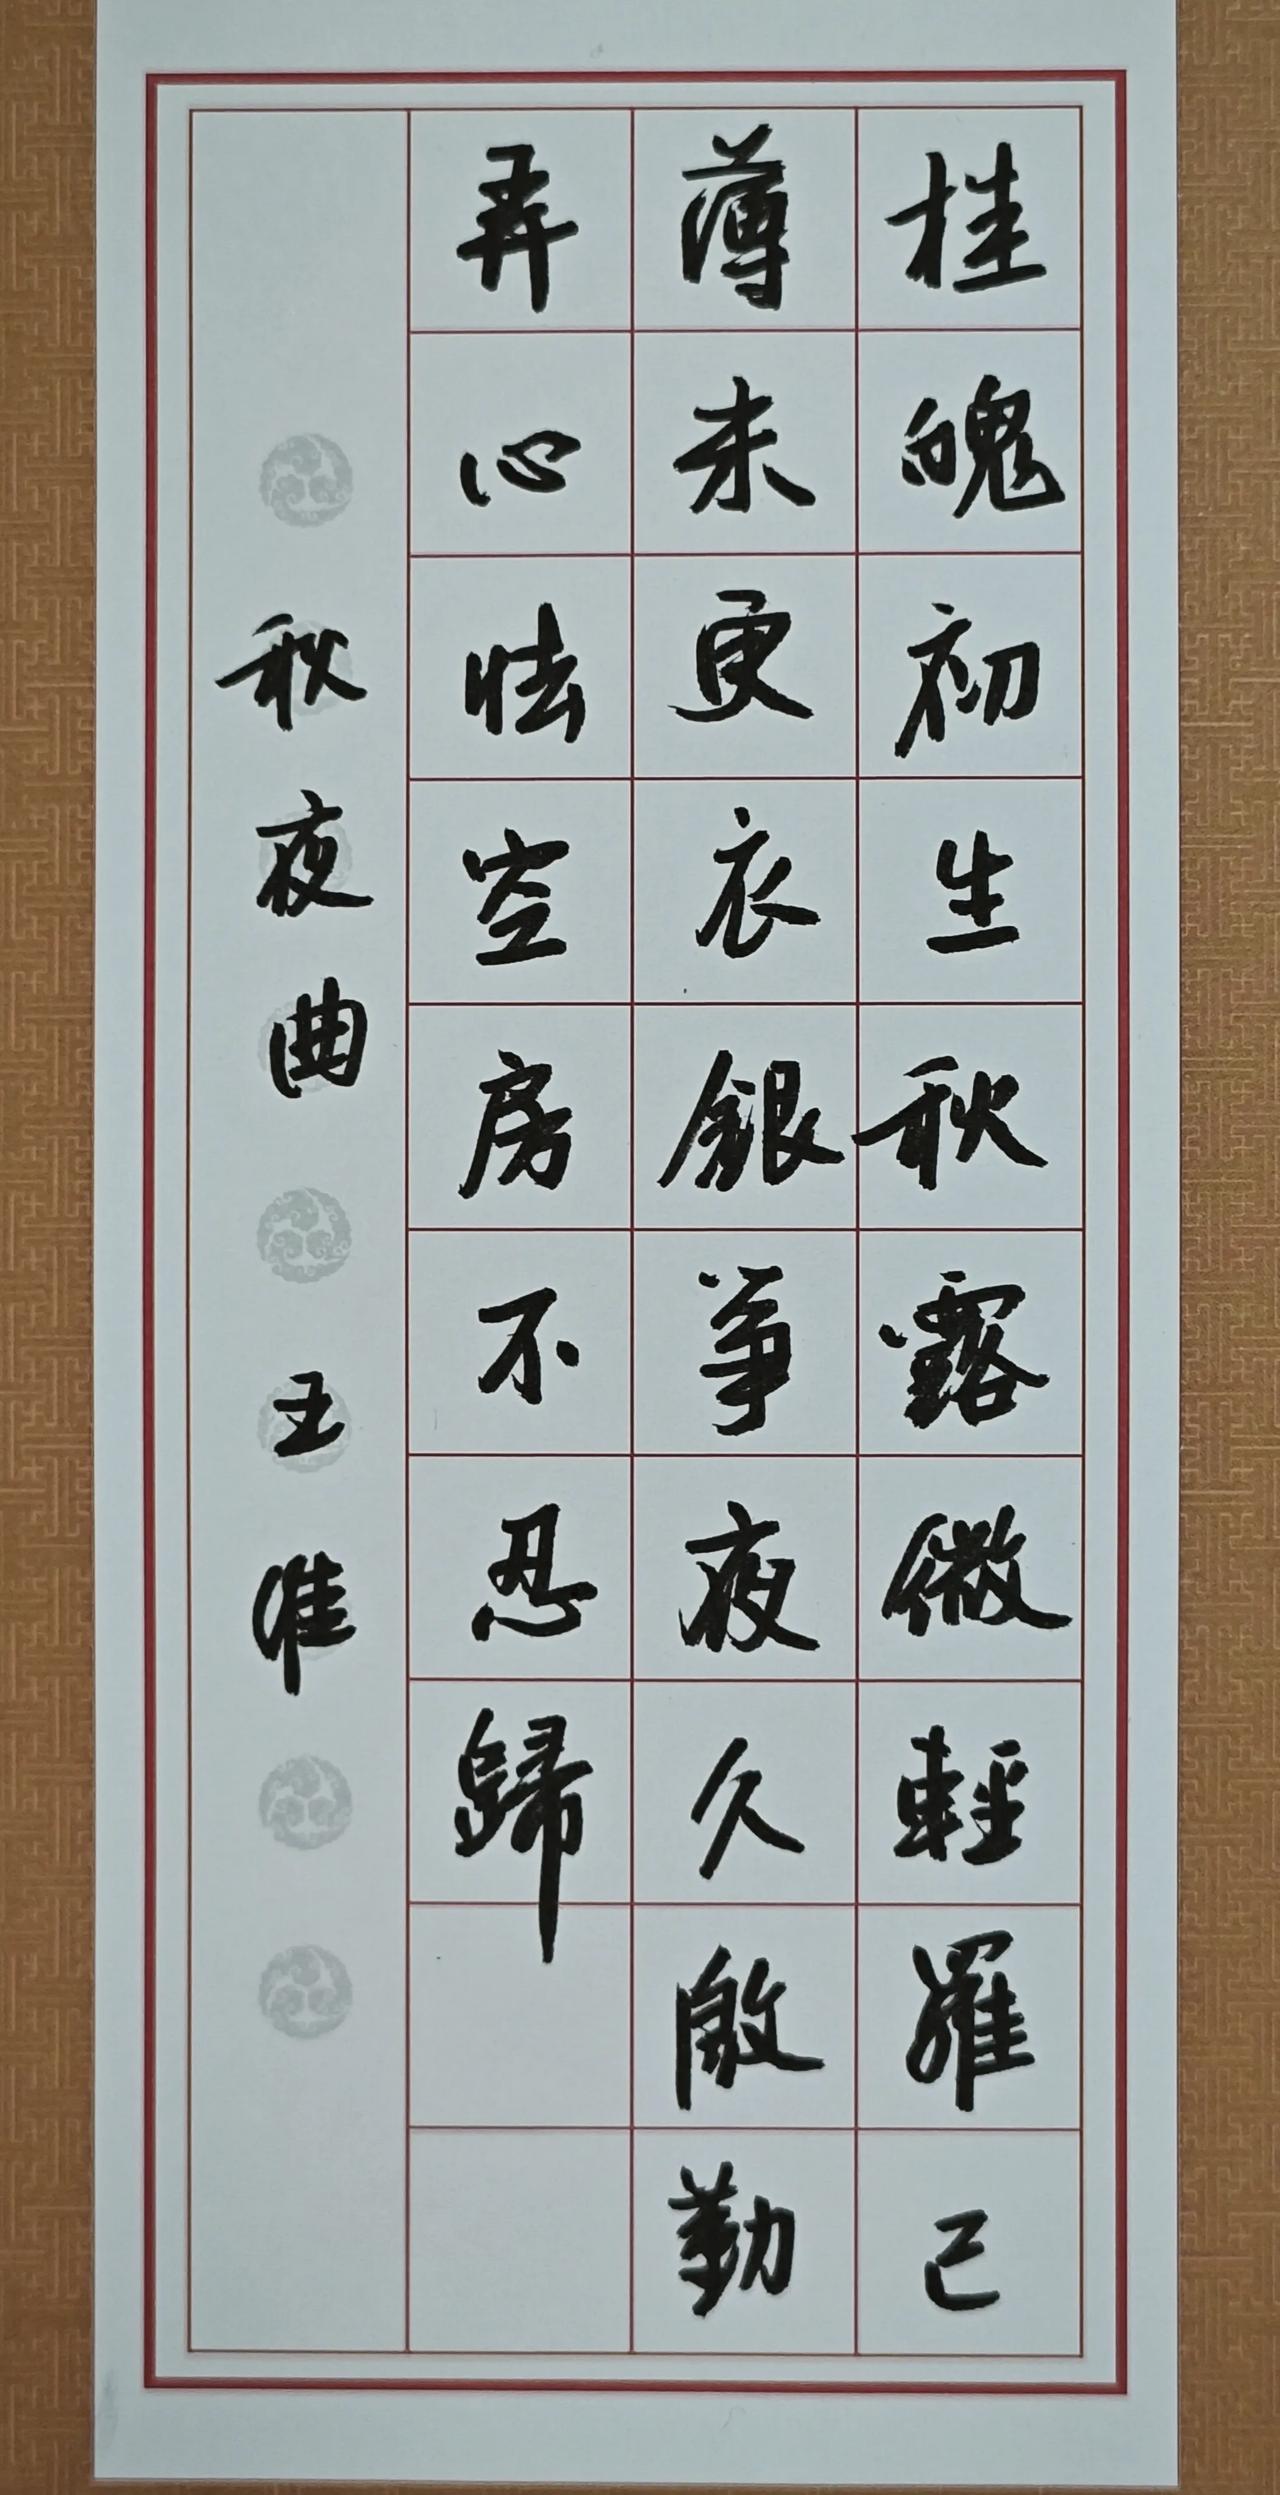 桂魄初生秋露微輕羅已
薄未更衣銀箏夜久殷勤
弄心怯空房不忍歸
秋夜曲 王准